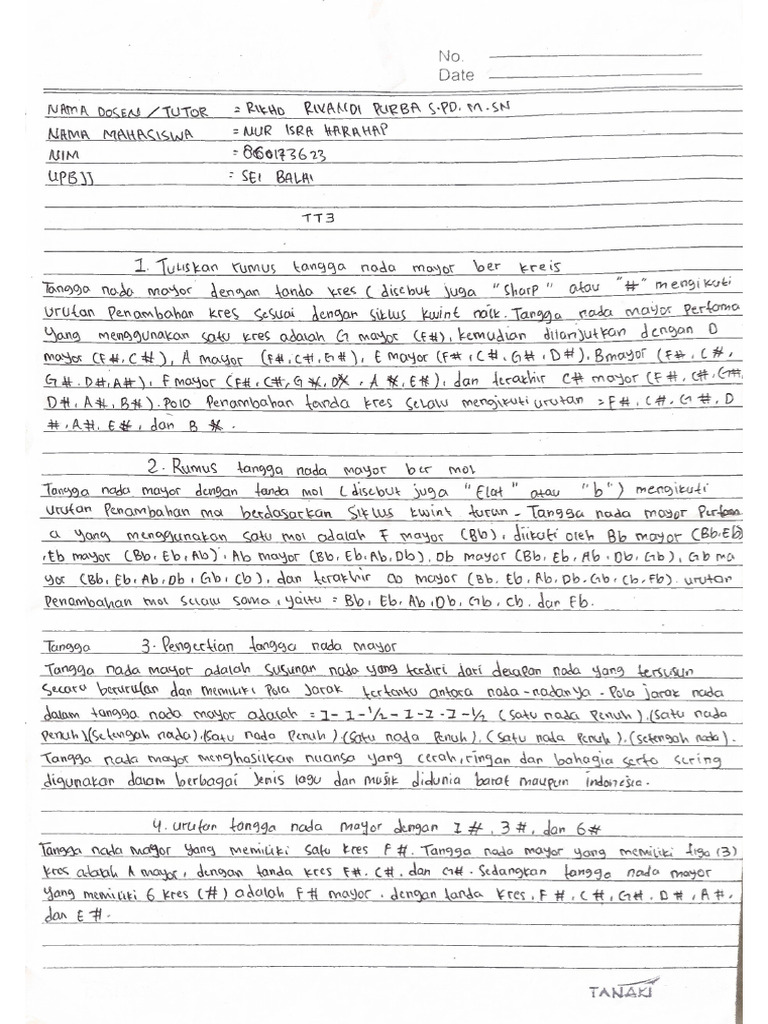 No.
Date
NAMA DOSEN / TUTOR = RIKHO RIVANDI PURBA S.PD. M.SN
NAMA MAHASISWA = NUR ISRA HARAHAP
NIM = 860173623
UPBJJ = SEI BALAI
TT3
1. Tuliskan rumus tangga nada mayor ber kreis
Tangga nada mayor dengan tanda kres ( disebut juga "Sharp" atau "#" mengikuti
urutan Penambahan kres sesuai dengan siklus kwint naik. Tangga nada mayor Pertama
yang menggunakan satu kres adalah G mayor (F#), kemudian dilanjutkan dengan D
mayor (F#, C#), A mayor (F#, C#, G#), E mayor (F#, C#, G#, D#), B mayor (F#, C#,
G#, D#, A#), F mayor (F#, C#, G#, D#, A#, E#), dan terakhir C# mayor (F#, C#, G#,
D#, A#, B#). Pola Penambahan tanda kres selalu mengikuti urutan = F#, C#, G#, D
#, A#, E#, dan B#.
2. Rumus tangga nada mayor ber mol
Tangga nada mayor dengan tanda mol ( disebut juga "Elat" atau "b") mengikuti
urutan Penambahan mol berdasarkan Siklus kwint turan - Tangga nada mayor Pertam
a yang menggunakan satu mol adalah F mayor (Bb), diikuti oleh Bb mayor (Bb, Eb)
, Eb mayor (Bb, Eb, Ab), Ab mayor (Bb, Eb, Ab, Db), Db mayor (Bb, Eb, Ab, Db, Gb), Gb ma
yor (Bb, Eb, Ab, Db, Gb, Cb), dan terakhir Cb mayor (Bb, Eb, Ab, Db, Gb, Cb, Fb). urutan
Penambahan mol selalu sama, yaitu = Bb, Eb, Ab, Db, Gb, Cb. dan Fb.
Tangga 3. Pengertian tangga nada mayor
Tangga nada mayor adalah susunan nada yang terdiri dari delapan nada yang tersusun
Secara berurutan dan memiliki Pola Jarak tertentu antara nada-nadanya - Pola jarak nada
dalam tangga nada mayor adalah = 1-1-½-1-1-1-½ (satu nada Penuh), (satu nada
Penuh),(setengah nada), (satu nada Penuh), (satu nada Penuh), (satu nada Penuh), (setengah nada).
Tangga nada mayor menghasilkan nuansa yang cerah, ringan dan bahagia serta sering
digunakan dalam berbagai jenis lagu dan musik didunia barat maupun indonesia.
4. urutan tangga nada mayor dengan 1#, 3#, dan 6#
Tangga nada mayor yang memiliki satu kres F#. Tangga nada mayor yang memiliki figa (3)
kres adalah A mayor, dengan tanda kres F#, C#, dan G#. Sedangkan tangga nada mayor
yang memiliki 6 kres (#) adalah F# mayor. dengan tanda kres, F#, C#, G#, D#, A#,
dan E#.
TANAKI